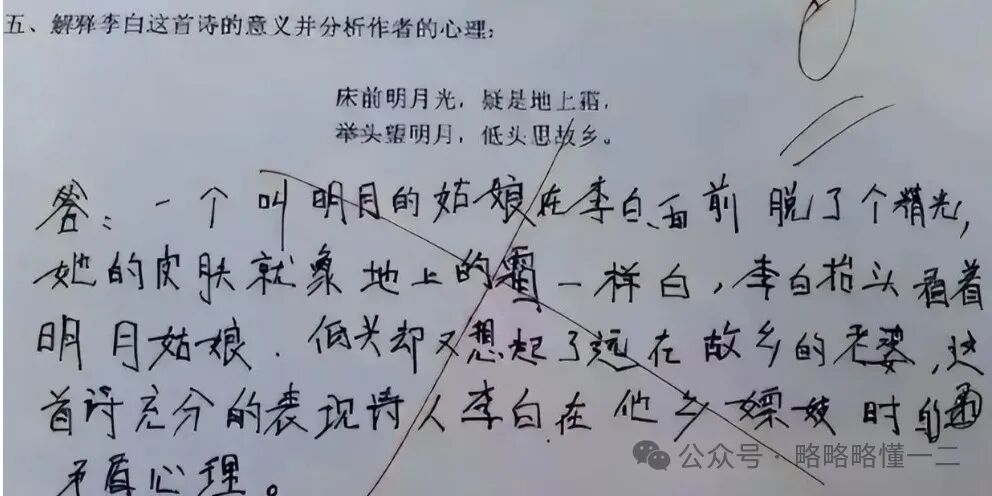 五、解释李白这首诗的意义并分析作者的心理:
床前明月光，疑是地上霜，
举头望明月，低头思故乡。
答：一个叫明月的姑娘在李白面前脱了个精光，
她的皮肤就象地上的霜一样白，李白抬头看着
明月姑娘．低头却又想起了远在故乡的老婆，这
首诗充分的表现诗人李白在他乡嫖妓时的
矛盾心理。
公众号·略略略懂一二